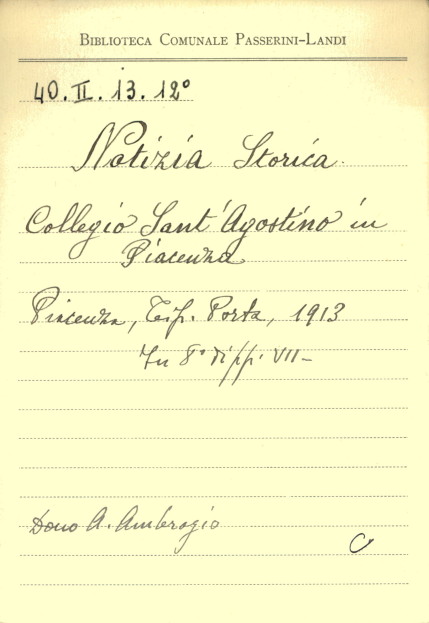 Biblioteca Comunale Passerini-Landi
40. II. 13. 12°
Notizia Storica
Collegio Sant'Agostino in
Piacenza
Piacenza, Tip. Porta, 1913
In 8° di pp. VII-
Dono A. Ambrogio
C